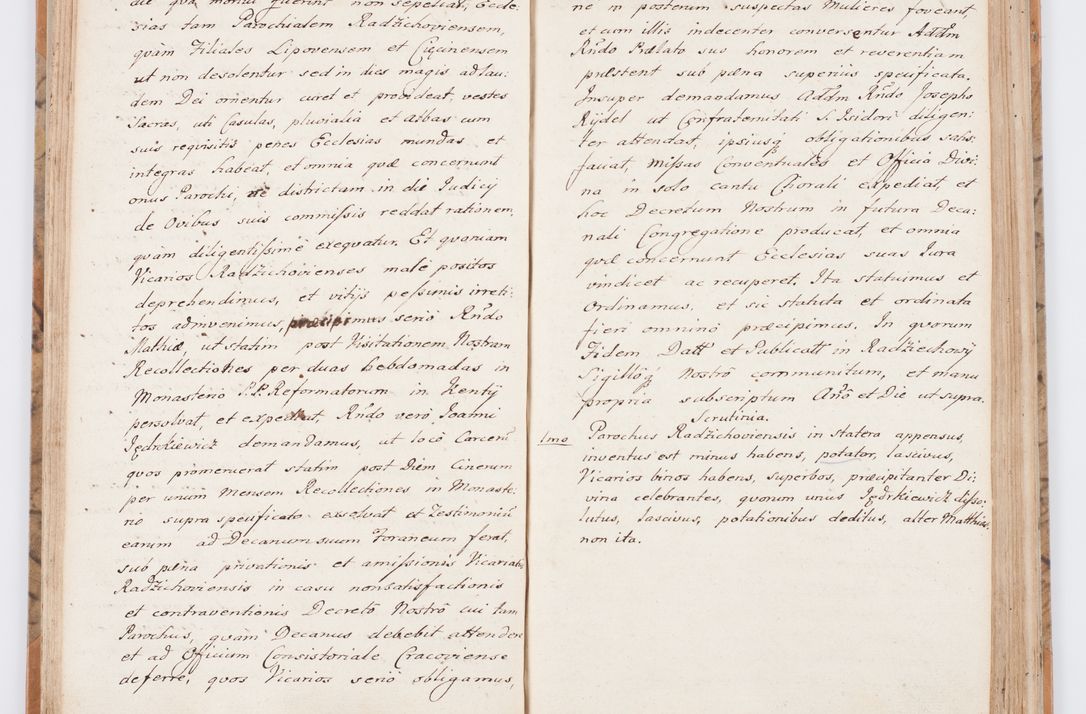 die qua mortui fuerint non sepeliat, Eccle:
sias tam Parochialem Radzichoviensem,
quàm Filiales Lipovensem et Cięcinensem
ut non desolentur sed in dies magis ad lau:
dem Dei ornentur curet et provideat, vestes
Sacras, uti Casulas, pluvialia et Albas cum
suis requisitis penes Ecclesias mundas et
integras habeat, et omnia quæ concernunt
onus Parochi, ne districtam in die Iudicij
de Ovibus suis commissis reddat rationem,
quàm diligentissimè exequatur. Et quoniam
Vicarios Radzichovienses malè positos
deprehendimus, et vitijs pessimis irreti:
tos adinvenimus, præcipimus seriò Rndo
Mathiæ, ut statim post Visitationem Nostram
Recollectiones per duas hebdomadas in
Monasterio P.P. Reformatorum in Kenty
persolvat, et expediat, Rndo verò Joanni
Jędrkiewicz demandamus, ut locô Carceris
quos promeruerat statim post Diem Cinerum
per unum Mensem Recollectiones in Monaste:
rio supra specificato exsolvat et Testimonium
earum ad Decanum suum Foraneum ferat,
sub pæna privationis et amissionis Vicariatus
Radzichoviensis in casu non satisfactionis
et contraventionis Decretô Nostrô cui tam
Parochus, quàm Decanus debebit attendere
et ad Officium Consistoriale Cracoviense
deferre, quos Vicarios seriò obligamus,
ne in posterum suspectas Mulieres foveant,
et cum illis indecenter conversentur Addm
Rndo Prælato suo honorem et reverentiam
præstent sub pæna superius specificata.
Insuper demandamus Addm Rndo Josepho
Rydel ut Confraternitati S. Isidori diligen:
ter attendat, ipsiusq obligationibus satis
faciat, Missas Conventuales et Officia Divi:
na in solo cantu Chorali expediat, et
hoc Decretum Nostrum in futura Deca:
nali Congregatione producat, et omnia
quæ concernunt Ecclesias suas Jura
vindicet ac recuperet. Ita statuimus et
Ordinamus, et sic statuta et ordinata
fieri omninò præcipimus. In quorum
Fidem Datt et Publicatt in Radziechowy
Sigillôq Nostrô communitum, et manu
propria subscriptum Anô et Die ut supra.
Scrutinia.
1mo Parochus Radzichoviensis in statera appensus,
inventus est minus habens, potator, lascivus,
Vicarios binos habens, superbos, præcipitanter Di:
vina celebrantes, quorum unus Jędrkiewicz disso:
lutus, lascivus, potationibus deditus, alter Matthias
non ita.